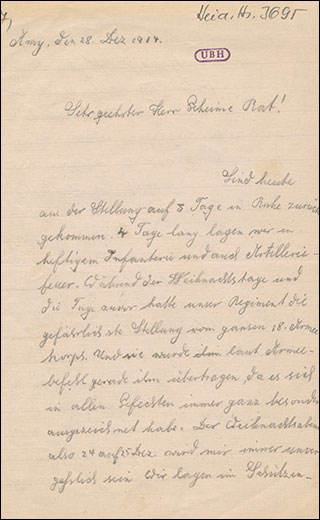 Heid. Hs. 3695
Amy, den 28 Dez 1914.
UBH
Sehr geehrter Herr Geheime Rat!
Sind heute
aus der Stellung auf 8 Tage in Ruhe zurück
gekommen. 4 Tage lang lagen wir in
heftigem Infanterie und auch Artillerie-
feuer. Während der Weihnachtstage und
die Tage zuvor hatte unser Regiment die
gefährlichste Stellung vom ganzen 18. Armee
korps. Und sie wurde ihm laut Armee-
befehl gerade ihm übertragen, da es sich
in allen Gefechten immer ganz besonders
ausgezeichnet habe. Der Weihnachtsabend
also 24 auf 25 Dez. wird mir immer unver
gesslich sein Wir lagen im Schützen-